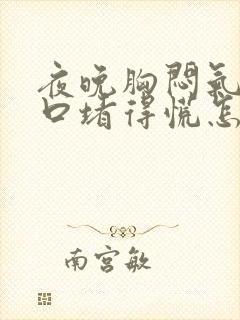 夜晚胸闷氣
口堵得慌怎
南宫敏